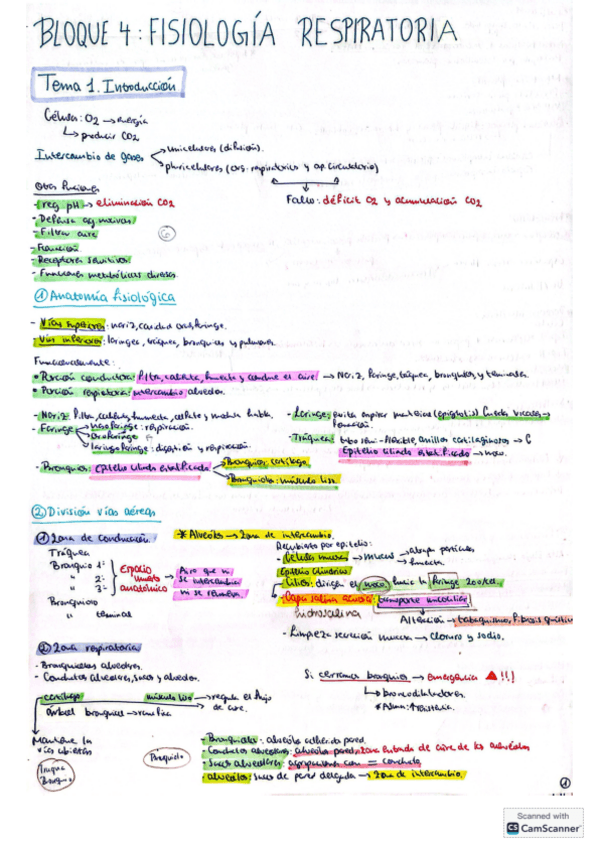 BLOQUE 4: FISIOLOGÍA RESPIRATORIA
Tema 1. Introducción
Célula: O2 → energía
↳ producir CO2
Intercambio de gases
unicelulares (difusión).
pluricelulares (org. respiratorio y ap. circulatorio)
Fallo: déficit O2 y acumulación CO2
Otras funciones
- reg pH → eliminación CO2
- Defensa ag. nocivos.
- Filtra aire
- Fonación.
- Receptores sensitivos
- Funciones metabólicas diversas.
① Anatomía fisiológica
- Vías superiores: nariz, cavidad oral, faringe.
- Vías inferiores: laringe, tráquea, bronquios y pulmones.
Funcionalmente:
• Porción conductora: filtra, calienta, humecta y conduce el aire. → Nariz, faringe, tráquea, bronquios y terminales.
• Porción respiratoria: intercambio alveolar.
- Nariz: filtra, calienta, humecta, olfato y modula habla.
- Faringe
nasofaringe: respiración
orofaringe
laringofaringe: digestión y respiración.
- Bronquios: epitelio ciliado estratificado
Bronquios: cartílago.
Bronquiolos: músculo liso.
- Laringe: evita aspirar materiales (epiglotis) Cuerdas vocales →
Fonación.
- Tráquea: tubo semi-flexible, anillos cartilaginosos → C
Epitelio ciliado estratificado → moco.
② División vías aéreas
① Zona de conducción.
Tráquea
Bronquio 1º
" 2º
" 3º
Bronquiolo
" terminal
Espacio muerto anatómico
Aire que no se intercambia ni se renueva
* Alveolos → Zona de intercambio.
Recubierto por epitelio:
- Células mucosas → mucus → atrapa partículas
→ humecta.
Epitelio cilíndrico.
- Cilios: dirigen el moco hacia la faringe
- Capa salina acuosa: transporte mucociliar
hidrosalina
Alteración → tabaquismo, Fibrosis quística
- Limpieza secreción mucosa → cloruro y sodio.
② Zona respiratoria
- Bronquiolos alveolares.
- Conductos alveolares, sacos y alveolos.
cartílago
músculo liso → regula el flujo de aire.
árbol bronquios → ramifica
Mantiene las vías abiertas
Tráquea Bronquio
Bronquiolo
Si cerramos bronquios → emergencia !!!
↳ broncodilatadores.
* Asma: resistencia.
- Bronquiolos: alveolos adheridos pared.
- Conductos alveolares: alveolos pared → zona entrada de aire de los alvéolos
- Sacos alveolares: agrupaciones con = conducto.
- alveolos: sacos de pared delgada → zona de intercambio.
①
Scanned with
CS CamScanner